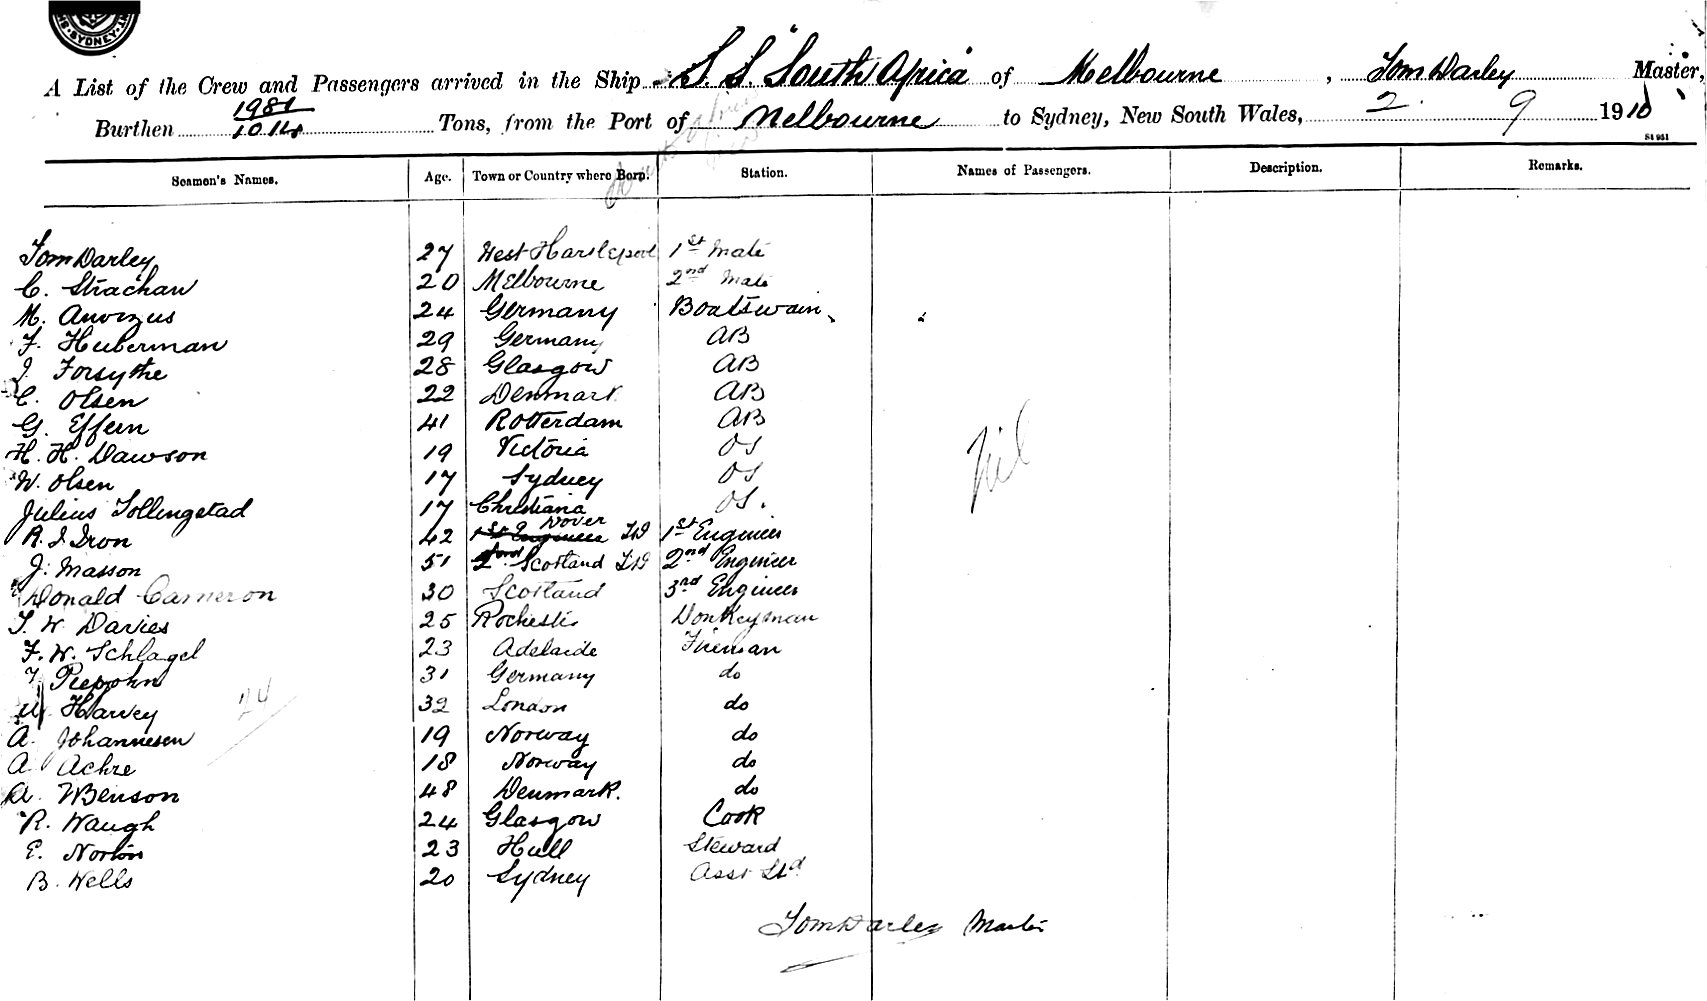 SYDNEY
A List of the Crew and Passengers arrived in the Ship S.S. "South Africa" of Melbourne, Tom Darley Master,
Burthen 1981 1014 Tons, from the Port of Melbourne to Sydney, New South Wales, 2. 9 1910
St 951
Seamen's Names. Age. Town or Country where Born. Station. Names of Passengers. Description. Remarks.
Tom Darley 27 West Hartlepool 1st Mate
C. Strachan 20 Melbourne 2nd Mate
M. 24 Germany Boatswain
F. Huberman 29 Germany AB
J. Forsythe 28 Glasgow AB
C. Olsen 22 Denmark AB
G. Effern 41 Rotterdam AB
H. H. Dawson 19 Victoria OS
W. Olsen 17 Sydney OS
Nil
Julius Tollingstad 17 Christiana OS.
R. J. Iron 42 1st Engineer Dover 1st Engineer
J. Masson 51 2nd Scotland 2nd Engineer
Donald Cameron 30 Scotland 3rd Engineer
T. W. Davies 25 Rochester Donkeyman
F. W. Schlagel 23 Adelaide Fireman
Piepjohn 31 Germany do
Harvey 32 London do
A. Johannesen 19 Norway do
A. Achre 18 Norway do
A. W Benson 48 Denmark. do
R. Waugh 24 Glasgow Cook
E. Norton 23 Hull Steward
B. Wells 20 Sydney Asst Std
Tom Darley Master